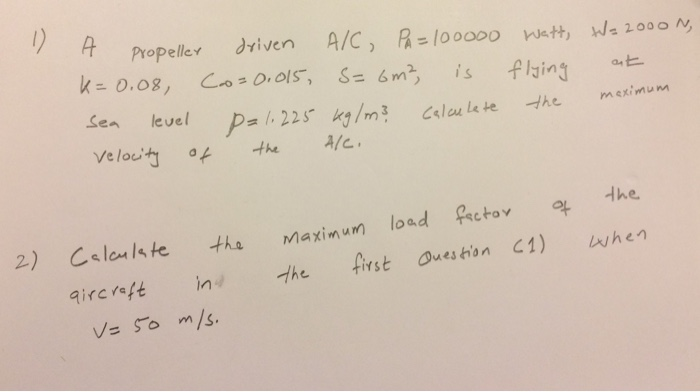 1) A Propeller driven A/C, PA = 100000 Watt, W = 2000 N,
K = 0.08, CD0 = 0.015, S = 6m², is flying at
Sea level ρ = 1.225 kg/m³. Calculate the maximum
Velocity of the A/C.
2) Calculate the Maximum load factor of the
aircraft in the first Question (1) when
V = 50 m/s.